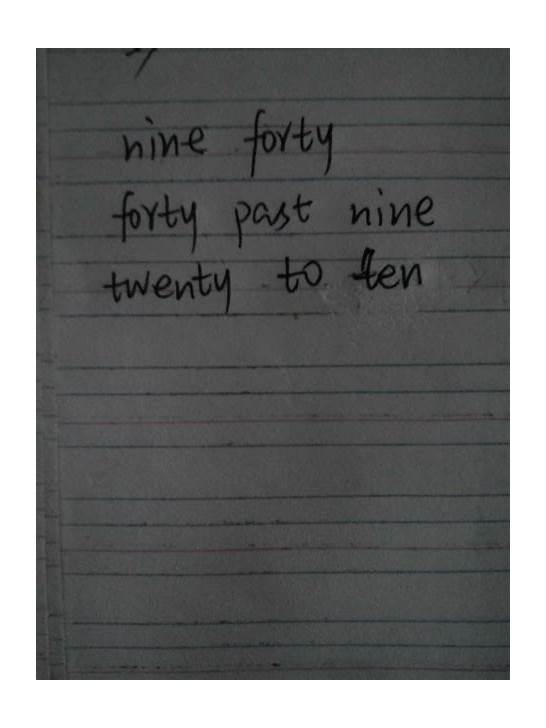 nine forty
forty past nine
twenty to ten